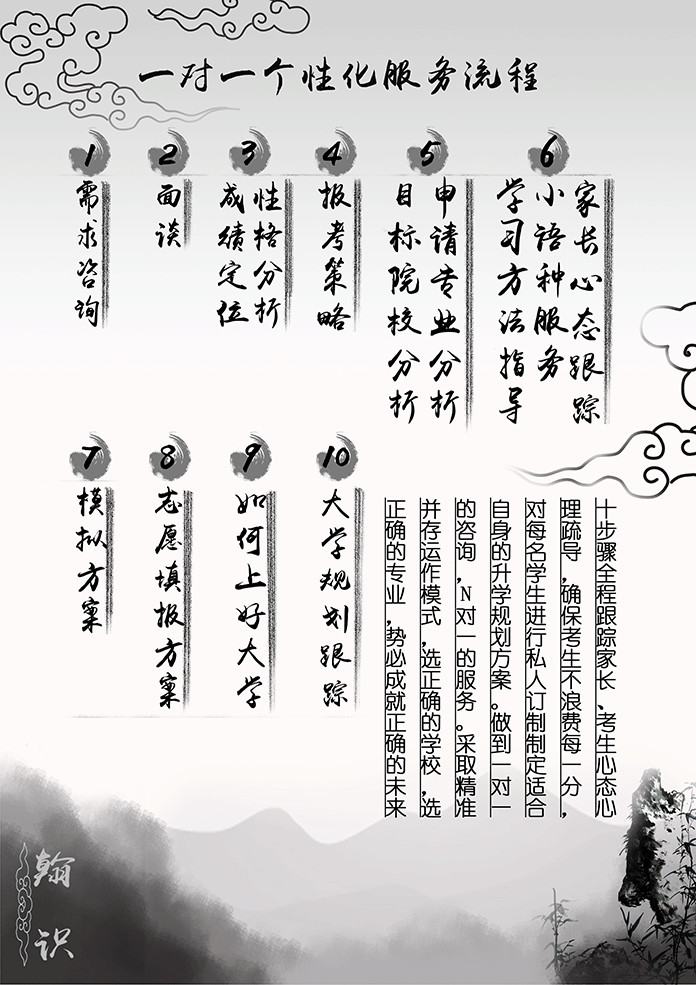 一对一个性化服务流程
1
需求咨询
2
面谈
3
性格分析
成绩定位
4
报考策略
5
申请专业分析
目标院校分析
6
家长心态跟踪
小语种服务
学习方法指导
7
模拟方案
8
志愿填报方案
9
如何上好大学
10
大学规划跟踪
十步骤全程跟踪家长、考生心态心
理疏导，确保考生不浪费每一分，
对每名学生进行私人订制制定适合
自身的升学规划方案。做到一对一
的咨询，N对一的服务。采取精准
并存运作模式，选正确的学校，选
正确的专业，势必成就正确的未来
翰识